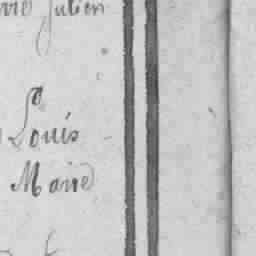 Julien
Louis
Marie